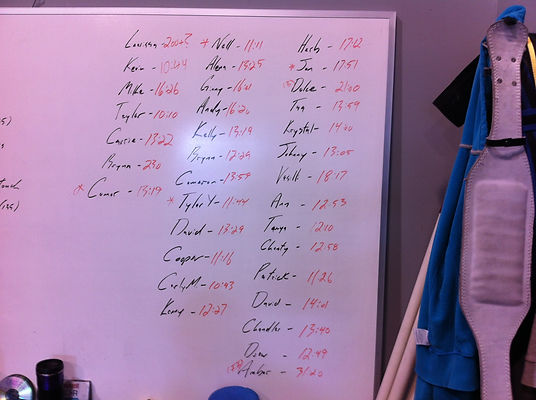 5)
s
touch
/55)
Louissa - 200+?
Kevin - 10:44
Mike - 16:26
Taylor - 10:10
Cassie - 13:22
Brynn - 230
* Connor - 13:19
* Nell - 11:11
Alexa - 13:25
Ginny - 16:21
Andy - 16:20
Kelly - 13:19
Bryan - 12:29
Cameron - 13:59
* Tyler Y - 11:44
David - 13:29
Cooper - 11:16
Carly M - 10:43
Kenny - 12:27
Herb - 17:12
* Jan - 17:51
Dulce - 21:00
Tan - 13:59
Krystal - 14:20
Johnny - 13:05
Vasili - 18:17
Ann - 12:53
Tanya - 12:10
Christy - 12:58
Patrick - 11:26
David - 14:01
Chandler - 13:40
Drew - 12:49
Amber - 31:20